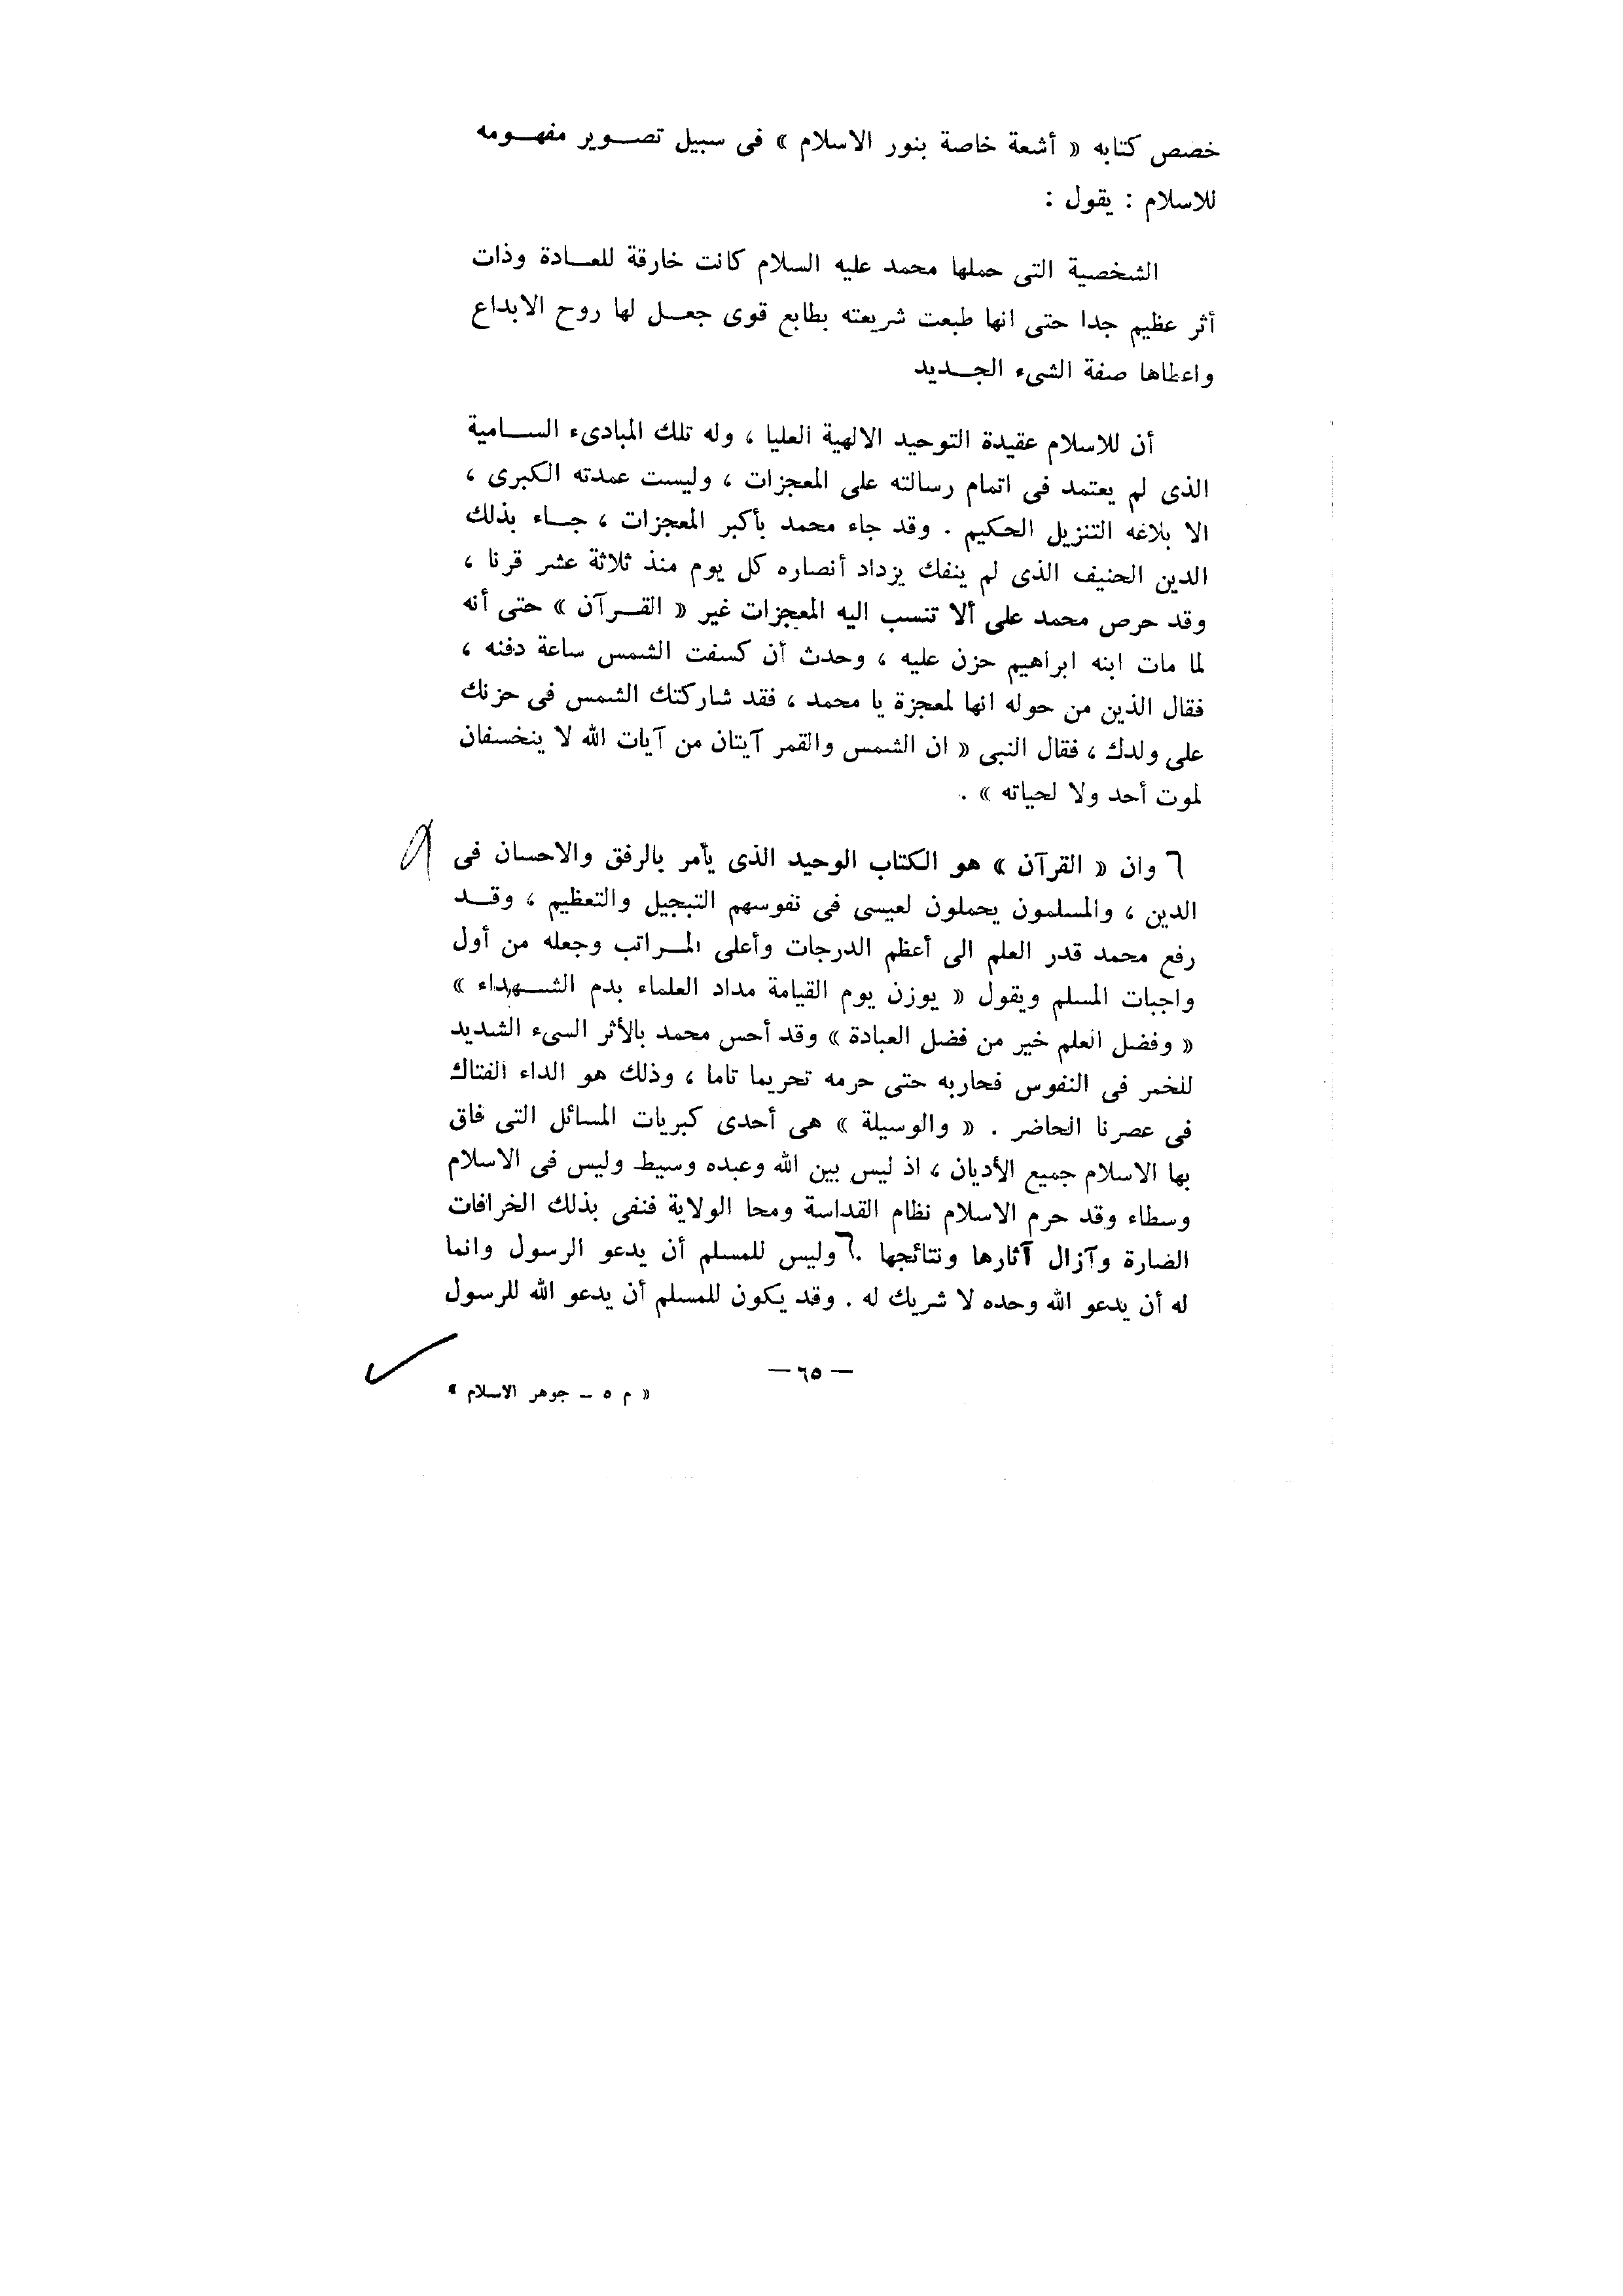 خصص كتابه « أشعة خاصة بنور الاسلام » فى سبيل تصوير مفهومه
للاسلام : يقول :
الشخصية التى حملها محمد عليه السلام كانت خارقة للعادة وذات
أثر عظيم جدا حتى انها طبعت شريعته بطابع قوى جعل لها روح الابداع
واعطاها صفة الشىء الجديد
أن للاسلام عقيدة التوحيد الالهية العليا ، وله تلك المبادىء السامية
الذى لم يعتمد فى اتمام رسالته على المعجزات ، وليست عمدته الكبرى ،
الا بلاغه التنزيل الحكيم . وقد جاء محمد بأكبر المعجزات ، جاء بذلك
الدين الحنيف الذى لم ينفك يزداد أنصاره كل يوم منذ ثلاثة عشر قرنا ،
وقد حرص محمد على ألا تنسب اليه المعجزات غير « القرآن » حتى أنه
لما مات ابنه ابراهيم حزن عليه ، وحدث أن كسفت الشمس ساعة دفنه ،
فقال الذين من حوله انها لمعجزة يا محمد ، فقد شاركتك الشمس فى حزنك
على ولدك ، فقال النبى « ان الشمس والقمر آيتان من آيات الله لا ينخسفان
لموت أحد ولا لحياته » .
وان « القرآن » هو الكتاب الوحيد الذى يأمر بالرفق والاحسان فى
الدين ، والمسلمون يحملون لعيسى فى نفوسهم التبجيل والتعظيم ، وقد
رفع محمد قدر العلم الى أعظم الدرجات وأعلى المراتب وجعله من أول
واجبات المسلم ويقول « يوزن يوم القيامة مداد العلماء بدم الشهداء »
« وفضل العلم خير من فضل العبادة » وقد أحس محمد بالأثر السىء الشديد
للخمر فى النفوس فحاربه حتى حرمه تحريما تاما ، وذلك هو الداء الفتاك
فى عصرنا الحاضر . « والوسيلة » هى أحدى كبريات المسائل التى فاق
بها الاسلام جميع الأديان ، اذ ليس بين الله وعبده وسيط وليس فى الاسلام
وسطاء وقد حرم الاسلام نظام القداسة ومحا الولاية فنفى بذلك الخرافات
الضارة وآزال آثارها ونتائجها . وليس للمسلم أن يدعو الرسول وانما
له أن يدعو الله وحده لا شريك له . وقد يكون للمسلم أن يدعو الله للرسول
— ٦٥ —
« م ٥ – جوهر الاسلام »